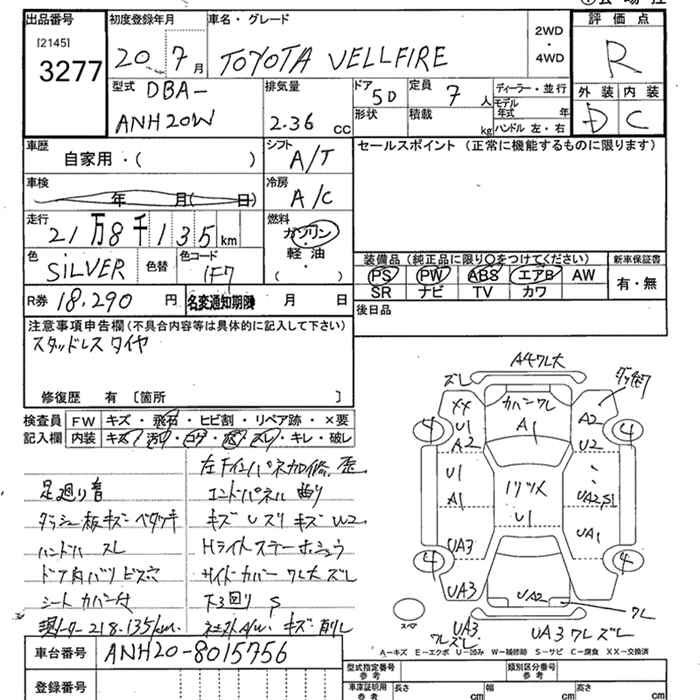 出品番号
[2145]
3277
初度登録年月
20 7 月
車名・グレード
TOYOTA VELLFIRE
2WD
・
4WD
評価点
R
外装 内装
D C
型式
DBA-
ANH20W
排気量
2.36 cc
ドア
5D
形状
定員
7 人
積載
kg
ディーラー・並行
モデル年式 年
ハンドル 左・右
車歴
自家用・( )
シフト
A/T
セールスポイント (正常に機能するものに限ります)
車検
年 月( 日)
冷房
A/C
走行
21万8千135km
燃料
ガソリン
軽油
( )
色
SiLVER
色替
色コード
1F7
装備品 (純正品に限り○をつけてください)
PS PW ABS エアB AW
SR ナビ TV カワ
新車保証書
有・無
R券 18,290 円
名変通知期限 月 日
後日品
注意事項申告欄(不具合内容等は具体的に記入して下さい)
スタッドレスタイヤ
修復歴 有 [箇所 ]
検査員
記入欄
FW キズ・飛石・ヒビ割・リペア跡・×要
内装 キズ・汚れ・・・・キレ・破レ
足廻り音
ダッシュ板キズ ベタツキ
ハンドル スレ
ドア内バリ ビス穴
シートカバー付
218.135km
エンドパネル 曲り
キズ Uズリ キズ W2
Hライトステー ホシュウ
サイドカバー ワレ大 ズレ
下廻り S
キズ 削レ
A4ワレ大
ズレ
カバーワレ
A1
XX
U1
A2
A2
U2
4
4
U1
A1
UA2,S1
U1
UA3
UA1
4
4
UA3
UA2
スペア
UA3
ワレズレ
UA3 ワレズレ
ワレ
A…キズ E…エクボ U…凹み W…補修跡 S…サビ C…腐食 XX…交換済
車台番号
ANH20-8015756
登録番号
型式指定番号
参考
類別区分番号
参考
車庫証明用
参考
長さ cm
幅 cm
高さ cm